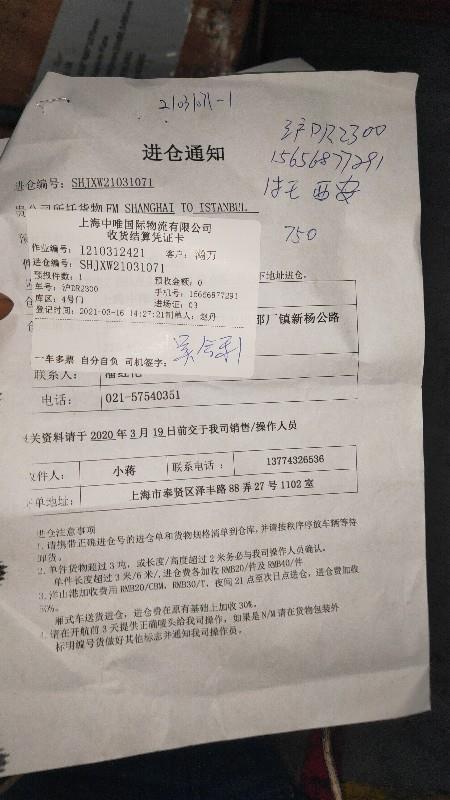 21031071-1
沪DR2300
15656877291
西安
750
进仓通知
进仓编号: SHJXW21031071
贵公司所托货物 FM SHANGHAI TO ISTANBUL
上海中唯国际物流有限公司
收货结算凭证卡
作业编号: 1210312421 客户: 鸿万
进仓编号: SHJXW21031071
预报件数: 1 预收金额: 0
车号: 沪DR2300 手机号: 15656877291
库区: 4号门 进场证: 03
登记时间: 2021-03-16 14:27:21 制单人: 赵丹
一车多票 自分自负 司机签字:
下地址进仓。
厂镇新杨公路
联系人:
电话: 021-57540351
关资料请于 2020 年 3 月 19 日前交于我司销售/操作人员
文件人: 小蒋 联系电话: 13774326536
单地址: 上海市奉贤区泽丰路 88 弄 27 号 1102 室
进仓注意事项
1. 请携带正确进仓号的进仓单和货物规格清单到仓库,并请按秩序停放车辆等待
卸货。
2. 单件货物超过 3 吨, 或长度/高度超过 2 米务必与我司操作人员确认。
单件长度超过 3 米/6 米/,进仓费各加收 RMB20/件及 RMB40/件
3. 洋山港加收费用 RMB20/CBM, RMB30/T, 夜间 21 点至次日点进仓, 进仓费加收
50%。
厢式车送货进仓, 进仓费在原有基础上加收 30%。
4. 请在开航前 3 天提供正确唛头给我司操作, 如果是 N/M 请在货物包装外
标明编号货做好其他标志并通知我司操作员。